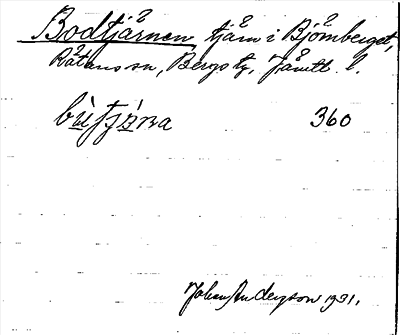 Bodtjärnen tjärn i Björnberget,
Rätans sn, Bergs tg, Jämtl. l.
bùtjä́rna 360
Johan Anderson 1931.